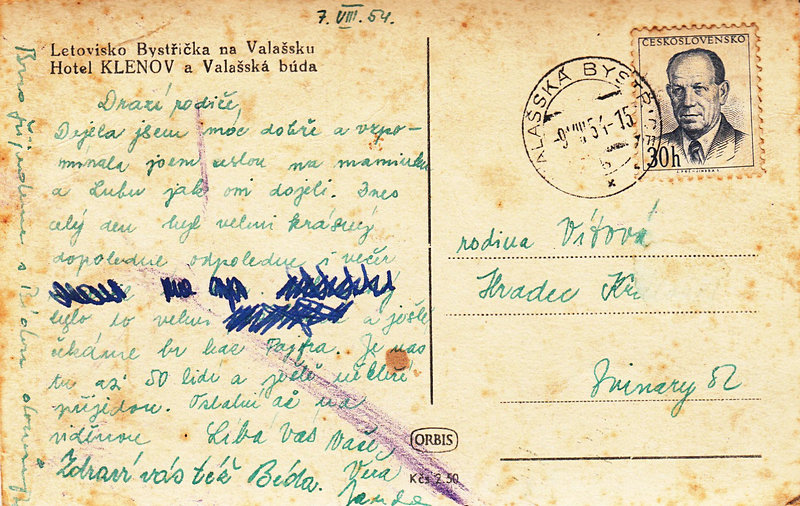 7. VIII. 54.
Letovisko Bystřička na Valašsku
Hotel KLENOV a Valašská búda
Drazí rodiče,
Dojela jsem moc dobře a vzpo-
mínala jsem cestou na maminku
a Lubu jak oni dojeli. Dnes
celý den byl velmi krásný
dopoledne odpoledne i večer
bylo to velmi a ještě
čekáme br. kac. Fajfra. Je nás
tu asi 50 lidí a ještě někteří
přijedou. Ostatní až na
viděnou Líbá Vás Vaše
Zdraví vás též Béda. Věra
ORBIS
Kčs 2.50
ČESKOSLOVENSKO
30h
VALAŠSKÁ BYSTŘICE
-9.VIII.54-15
rodina Vítova
Hradec Kr
Svinary 52